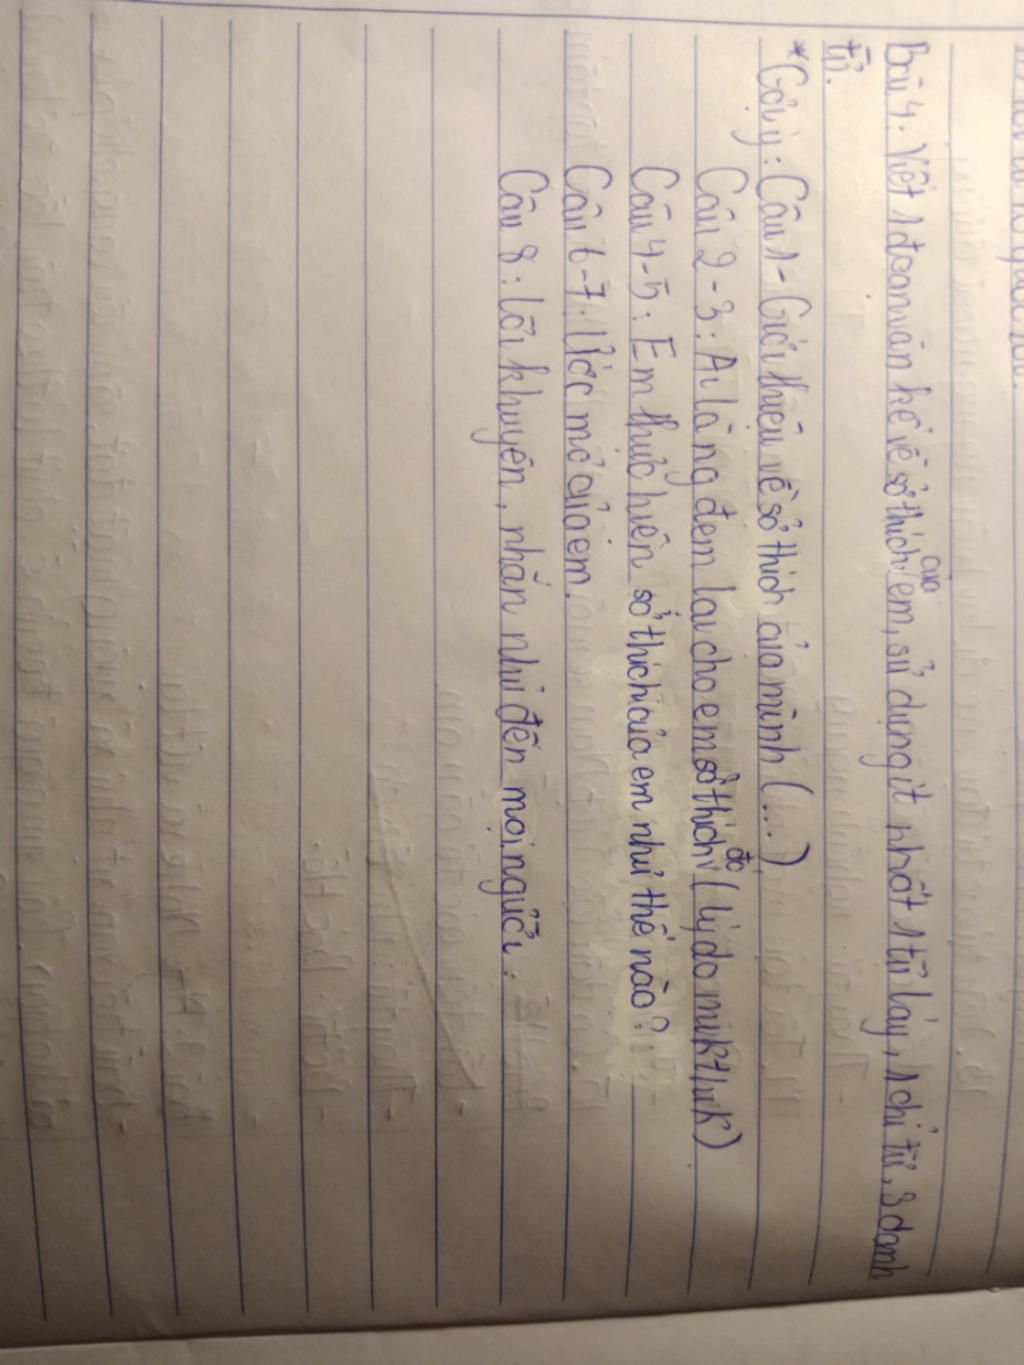 Bài 4: Viết 1 đoạn văn kể về sở thích của em, sử dụng ít nhất 1 từ láy, 1 chỉ từ, 3 danh
từ.
*Gợi ý: Câu 1 - Giới thiệu về sở thích của mình (...)
Câu 2-3: Ai là ng đem lại cho em sở thích đó (lý do mik thik)
Câu 4-5: Em thực hiện sở thích của em như thế nào?
Câu 6-7: Ước mơ của em.
Câu 8: Lời khuyên, nhắn nhủ đến mọi người.